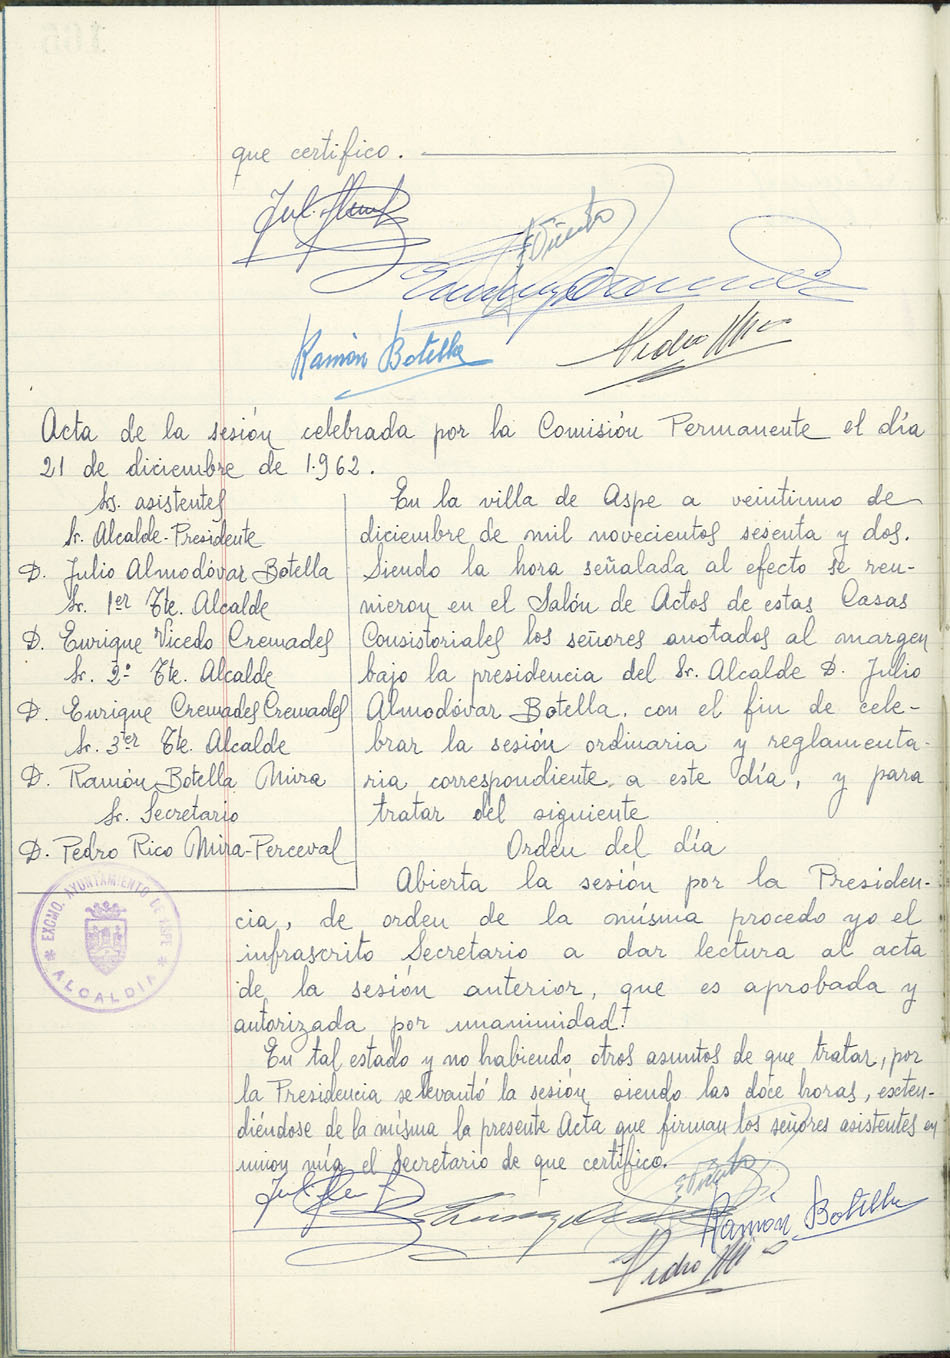 que certifico.
E Vicedo
Ramón Botella
Pedro
Acta de la sesión celebrada por la Comisión Permanente el día
21 de diciembre de 1.962.
Sres. asistentes
Sr. Alcalde-Presidente
D. Julio Almodóvar Botella
Sr. 1er Tte. Alcalde
D. Enrique Vicedo Cremades
Sr. 2º Tte. Alcalde
D. Enrique Cremades Cremades
Sr. 3er Tte. Alcalde
D. Ramón Botella Mira
Sr. Secretario
D. Pedro Rico Mira-Perceval
En la villa de Aspe a veintiuno de
diciembre de mil novecientos sesenta y dos.
Siendo la hora señalada al efecto se reu-
nieron en el Salón de Actos de estas Casas
Consistoriales los señores anotados al margen
bajo la presidencia del Sr. Alcalde D. Julio
Almodóvar Botella, con el fin de cele-
brar la sesión ordinaria y reglamenta-
ria correspondiente a este día, y para
tratar del siguiente
Orden del día
Abierta la sesión por la Presiden-
cia, de orden de la misma procedo yo el
infrascrito Secretario a dar lectura al acta
de la sesión anterior, que es aprobada y
autorizada por unanimidad.
En tal estado y no habiendo otros asuntos de que tratar, por
la Presidencia se levantó la sesión siendo las doce horas, exten-
diéndose de la misma la presente Acta que firman los señores asistentes en
unión mía el Secretario de que certifico.
EXCMO. AYUNTAMIENTO DE ASPE
* ALCALDÍA *
E Vicedo
Ramón Botella
Pedro